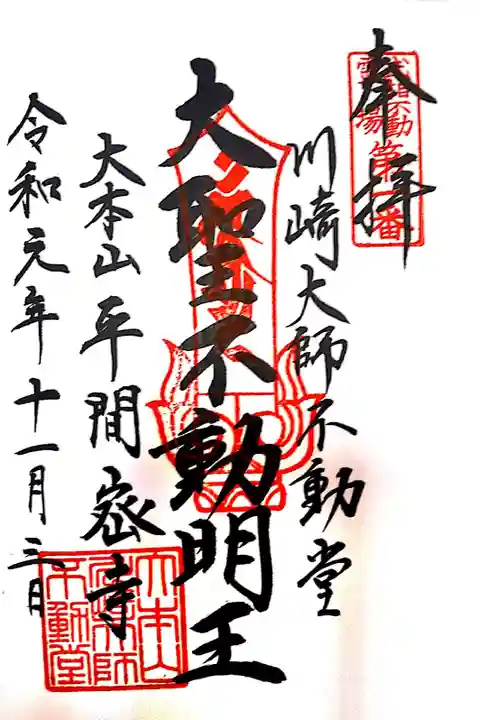 奉拝
武相不動
霊場
第一番
川崎大師不動堂
大聖不動明王
大本山平間寺
令和元年十一月三日
大本山
川崎大師
不動堂